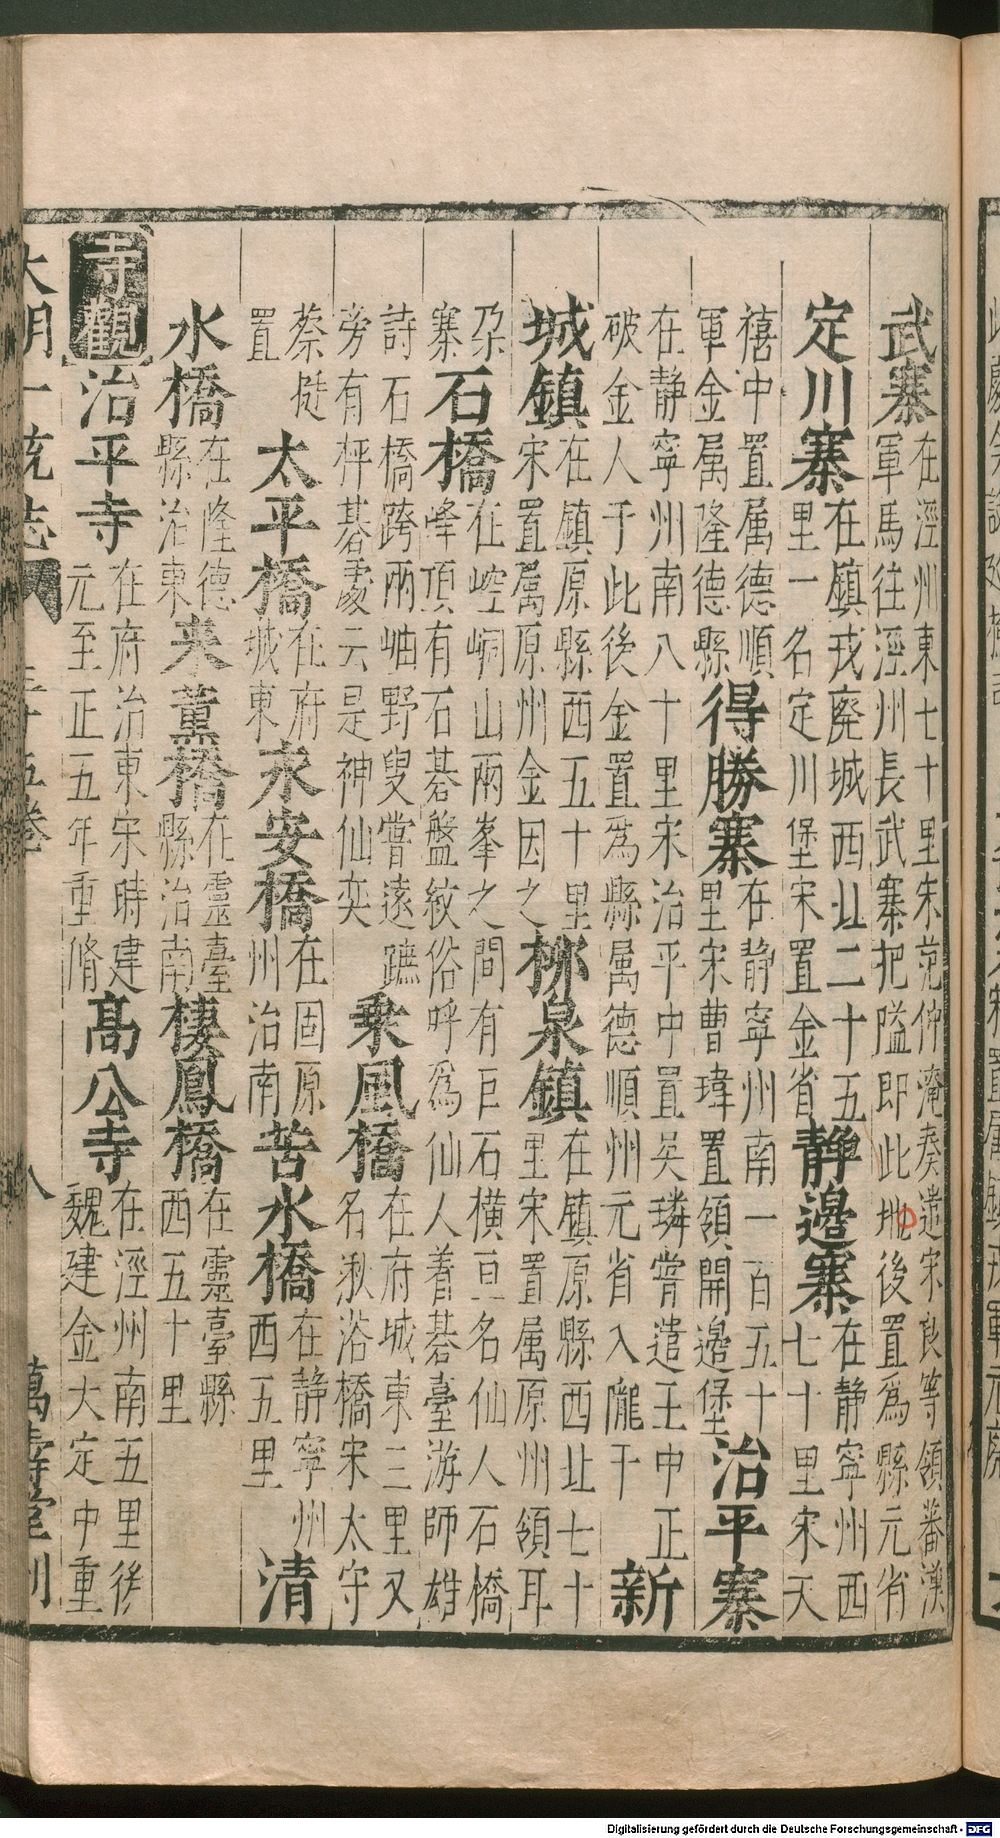 武寨在涇州東七十里宋范仲淹奏遣宋良等領蕃漢軍馬往涇州長武寨把隘即此地後置爲縣元省
定川寨在鎮戎廢城西北二十五里一名定川堡宋置金省靜邊寨在静寧州西七十里宋天
禧中置属德順軍金属隆德縣得勝寨在静寧州南一百五十里宋曹瑋置領開邊堡治平寨
在静寧州南八十里宋治平中置吴璘嘗遣王中正破金人于此後金置爲縣屬德順州元省入隴干新
城鎮在鎮原縣西五十里宋置属原州金因之柳泉鎮在鎮原縣西北七十里宋置属原州領耳
朶寨石橋在崆峒山兩峯之間有巨石橫亘名仙人石橋峰頂有石碁盤紋俗呼爲仙人着碁臺游師雄
詩石橋跨兩岫野叟嘗遠蹠旁有枰碁處云是神仙奕乗風橋在府城東三里又名湫浴橋宋太守
蔡挺置太平橋在府城東永安橋在固原州治南苦水橋在静寧州西五里清
水橋在隆德縣治東来薰橋在靈臺縣治南棲鳳橋在靈臺縣西五十里
寺觀治平寺在府治東宋時建元至正五年重脩高公寺在涇州南五里後魏建金大定中重
大明一統志 三十五卷 八 萬壽堂刊
Digitalisierung gefördert durch die Deutsche Forschungsgemeinschaft - DFG